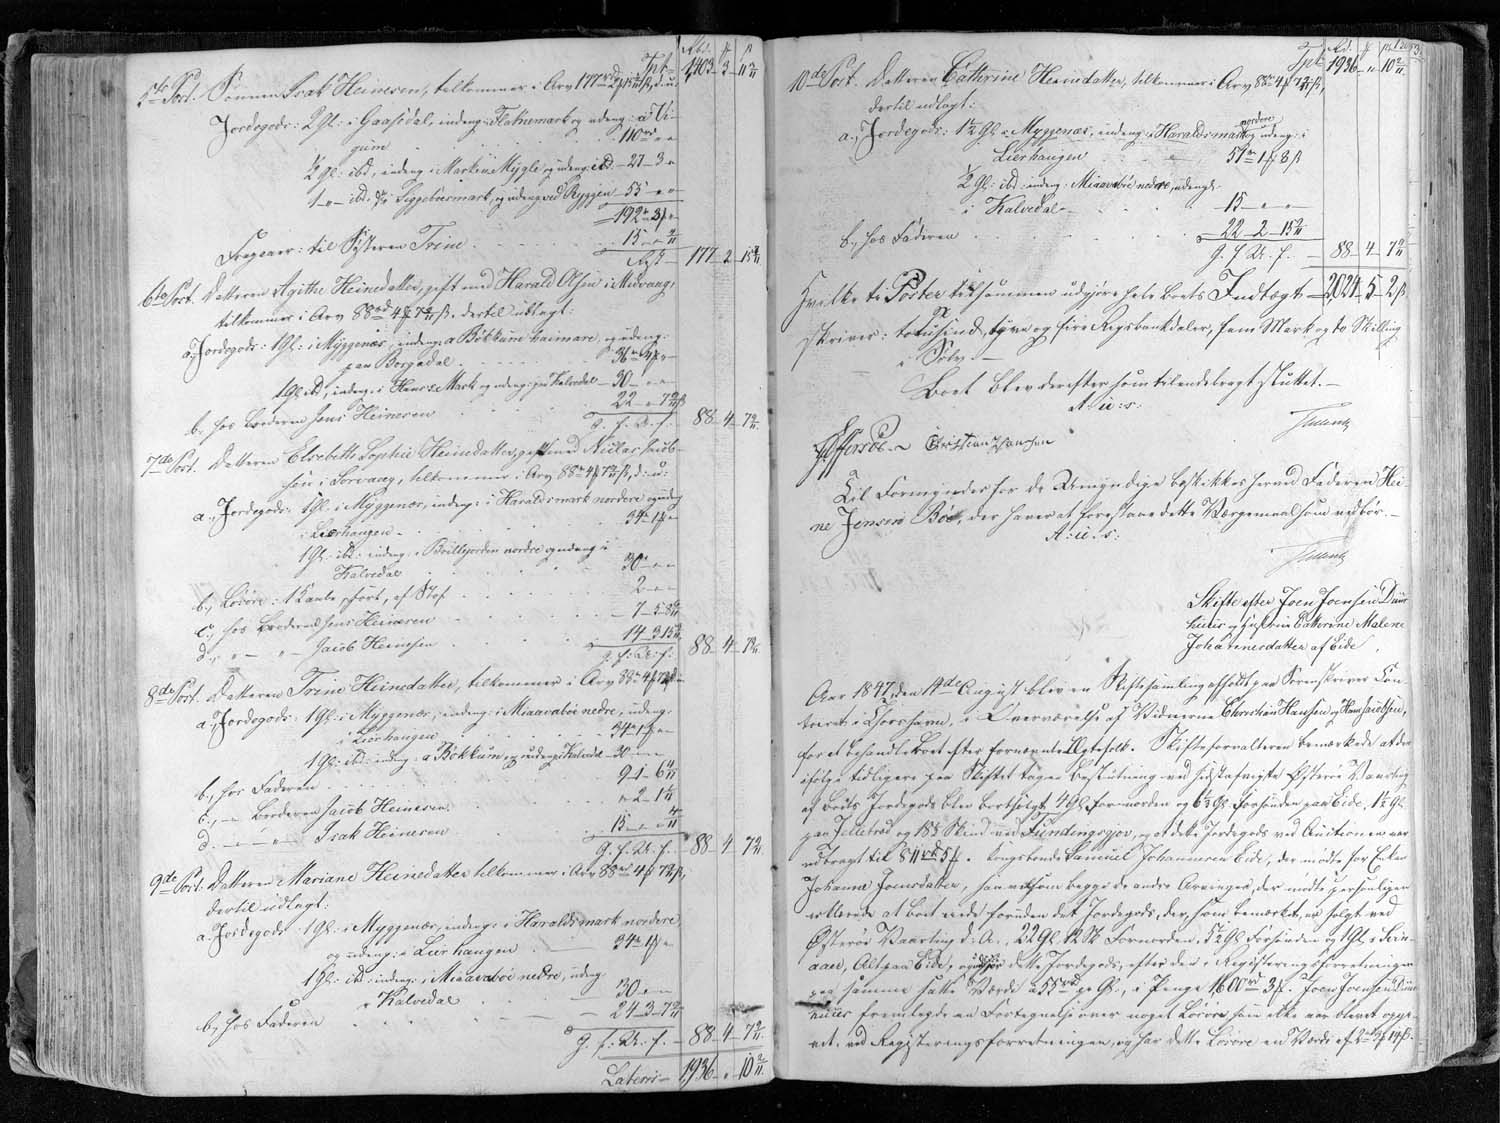 Rbd. ₰ ß
Tpt 1403 - 3 - 11 2/11
5te Post. Sønnen Isak Heinesen, tilkommer i Arv 177 rd 2 ₰ 15 4/11 ß, d: u:
a. Jordegods: 2 Gl: i Gaasedal, indeng: Flatnemark og udeng: a Vi-
gum . . . 110 rd " "
½ Gl: ibd, indeng i Marken Mÿgle og udeng: ibd. - 27 - 3 "
1 - " - ibd. do Siggeboesmark, og udeng ved Ryggen 55 " "
192 rd 3 ₰ "
Fragaar: til Søsteren Trine . . . 15 - " 4/11
Rest - 177 - 2 - 15 4/11
6te Post. Datteren Agithe Heinedatter, gift med Harald Olsen i Midvaag,
tilkommer i Arv 88 rd 4 ₰ 7 2/11 ß. dertil udlagt:
a, Jordegods: 1 Gl: i Mÿggenæs, indeng: a Bökkum haimare, og udeng:
paa Borgadal . . 36 rd 4 ₰ "
1 Gl: ibd, indeng: i Hans's Mark og udeng: i Kalvedal - 30 - " "
b. hos Broderen Jens Heinesen . . . 22 " 7 2/11 ß
g. f. A. f. - 88 - 4 - 7 2/11
7de Post. Datteren Elsebeth Sophie Heinedatter, gift med Niclas Jacob-
sen i Sørvaag, tilkommer i Arv 88 rd 4 ₰ 7 2/11 ß, d: u:
a., Jordegods: 1 Gl: i Mÿggenæs, indeng: i Haraldsmark nordere og udeng
i Lierhaugen - . . 34 rd 1 ₰ "
1 Gl: ibd: indeng: i Böillegorden nordre og udeng i
Kalvedal . . . 30 rd " "
b., Løsøre: 1 Kaabe, sort, af Stof . . . 2 - " "
c., hos Broderen Jens Heinesen . . . 7 - 5 - 8
d., " - " - Jacob Heinesen . . . 14 - 3 15
g. f: A: f: - 88 - 4 - 7 2/11
8de Post. Datteren Trine Heinedatter, tilkommer i Arv 88 rd 4 ₰ 7 2/11
a., Jordegods: 1 Gl: i Mÿggenæs, indeng: i Miaavaboë nedre, udeng:
i Lierhaugen . . . 34 rd 1 ₰ "
1 Gl: ibd: indeng: a Bökkum, og udeng: i Kalvedal - 30 - " "
b., hos Faderen . . . 9 - 1 - 6 4/11
c., - " Broderen Jacob Heinesen . . . " - 2 - 1
d. - " - " - Isak Heinesen . . . 15 - " 4/11
g. f. A. f. - 88 - 4 - 7 2/11
9de Post. Datteren Mariane Heinedatter tilkommer i Arv 88 rd 4 ₰ 7 2/11 ß,
dertil udlagt:
a. Jordegods 1 Gl: i Mÿggenæs, indeng: i Haraldsmark nordere,
og udeng: i Lierhaugen . . . 34 rd 1 ₰ "
1 Gl: ibd: indeng: i Miaavaboë nedre, udeng
i Kalvedal . . . 30 - " "
b, hos Faderen . . . 24 - 3 - 7 2/11
g. f. A. f. - 88 - 4 - 7 2/11
Lateris - 1936 - " - 10 2/11
Rd. ₰ ß
Tpt 1936 - " - 10 2/11
10de Post. Datteren Cathrine Heinedatter, tilkommer i Arv 88 rd 4 ₰ 7 2/11 ß,
dertil udlagt:
a., Jordegods: 1½ Gl: i Mÿggenæs, indeng: i Haraldsmark nordere og udeng: i
Lierhaugen . . . 51 rd 1 ₰ 8 ß
½ Gl: ibd: indeng: Miaavaboë nedre, udeng:
i Kalvedal - . . . 15 - " "
b., hos Faderen . . . 22 - 2 - 15 2/11
g. f. A. f. - 88 - 4 - 7 2/11
Hvilke ti Poster tilsammen udgjøre hele Boets Indtægt - 2024 - 5 - 2 ß
skriver: totusind, tyve og fire Rigsbankdaler, fem Mark og to Skilling
i Sølv. -
Boet blev derefter som tilendebragt sluttet. -
A: u: s:
Christian Hansen
Til Formynder for de Umyndige beskikkes herved Faderen Hei-
ne Jensen Böe, der haver at forestaae dette Værgemaal som vedbør. -
A: u: s:
Skifte efter Joen Joensen Duur
huus og Hustrue Catherine Malene
Johannesdatter af Eide.
Aar 1847, den 14de August blev en Skiftesamling afholdt paa Sorenskriver Con-
toiret i Thorshavn, i Overværelse af Vidnerne Christian Hansen og Hans Jacobsen,
for at behandle Boet efter fornævnte Ægtefolk. Skifteforvalteren bemærkede at der
ifølge tidligere paa Skiftet tagen Beslutning ved sidstafvigte Østerø Vaarting
af Boets Jordegods blev bortsolgt 4 Gl: fornorden og 6½ Gl. forsønden paa Eide, 1½ Gl:
paa Tellestad og 18½ Skind ved Fundingsgjov, og at dette Jordegods ved Auctionen var
udbragt til 811 rd 5 ₰. Kongsbonde Samuel Johannesen Eide, der mødte for Enken
Johanne Joensdatter, saavelsom begge de andre Arvinger, der mødte personligen
erklærede at Boet eiede foruden det Jordegods, der, som bemærket, er solgt ved
Østerø Vaarting d: A., 22 Gl 12 Sk fornorden, 5½ Gl forsønden og 1 Gl i Svin-
aae, Alt paa Eide, og udgjør dette Jordegods, efter den i Registreringsforretningen
paa samme satte Værdi à 55 rd pr Gl:, i Penge 1600 rd 3 ₰. Joen Joensen Duur-
huus fremlagde en Fortegnelse over noget Løsøre som ikke var blevet opgi-
vet ved Registreringsforretningen, og har dette Løsøre en Værdi af 2 rd 3 ₰ 14 ß.